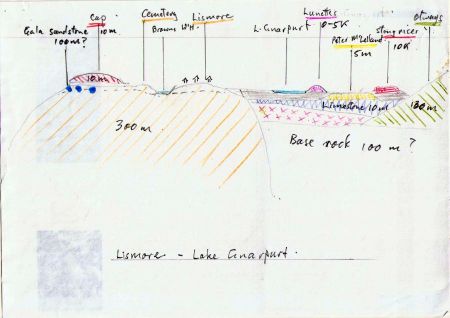 Gala sandstone
100m?
Cap
10m
Cemetery
Browns W'H
Lismore
L. Gnarpurt
Lunettes
0-5K
Peter McLelland
5m
Stony riser
10K
Otways
10m
Limestone 10m
130m
300m
Base rock 100m?
Lismore - Lake Gnarpurt.